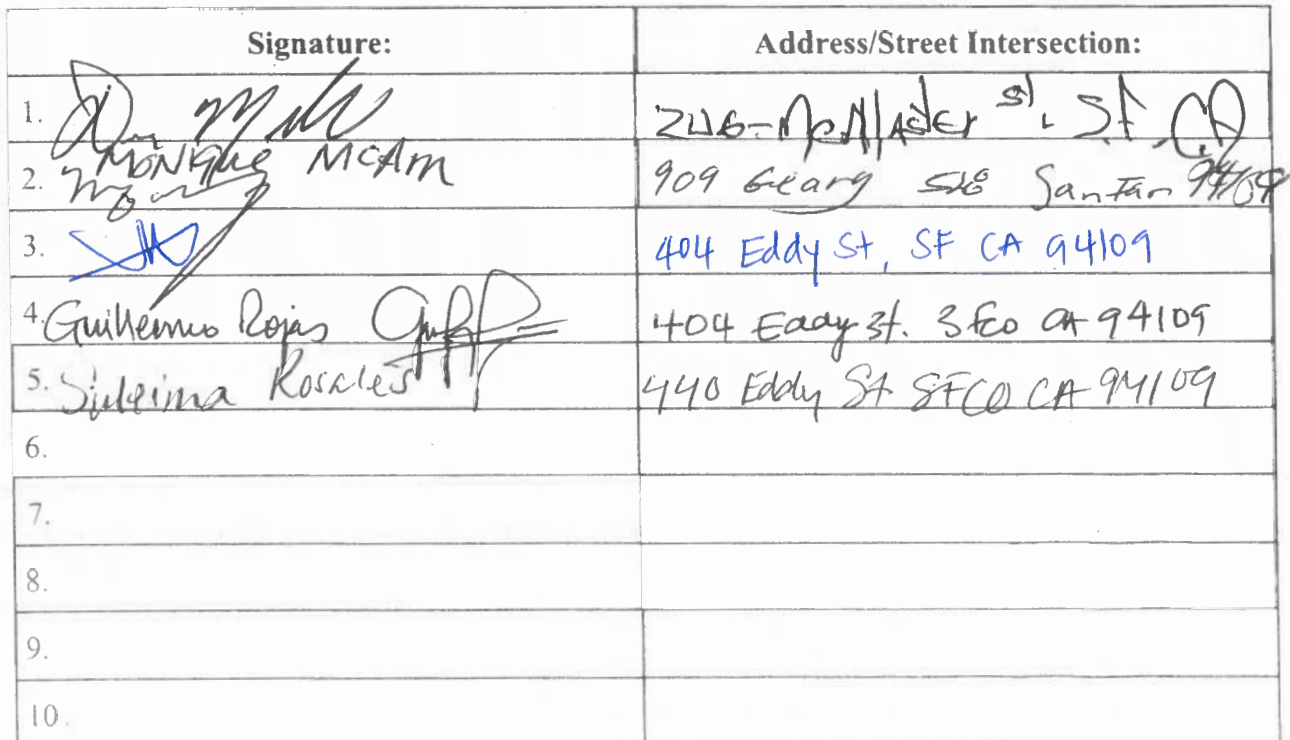 Signature: Address/Street Intersection:
1. St. S.F. CA
2. MONIQUE MCAM 909 Geary San Fran 94109
3. 404 Eddy St, SF CA 94109
4. Guillermo Rojas 404 Eddy St. SFco CA 94109
5. Suleima Rosales 440 Eddy St SFCO CA 94109
6.
7.
8.
9.
10.